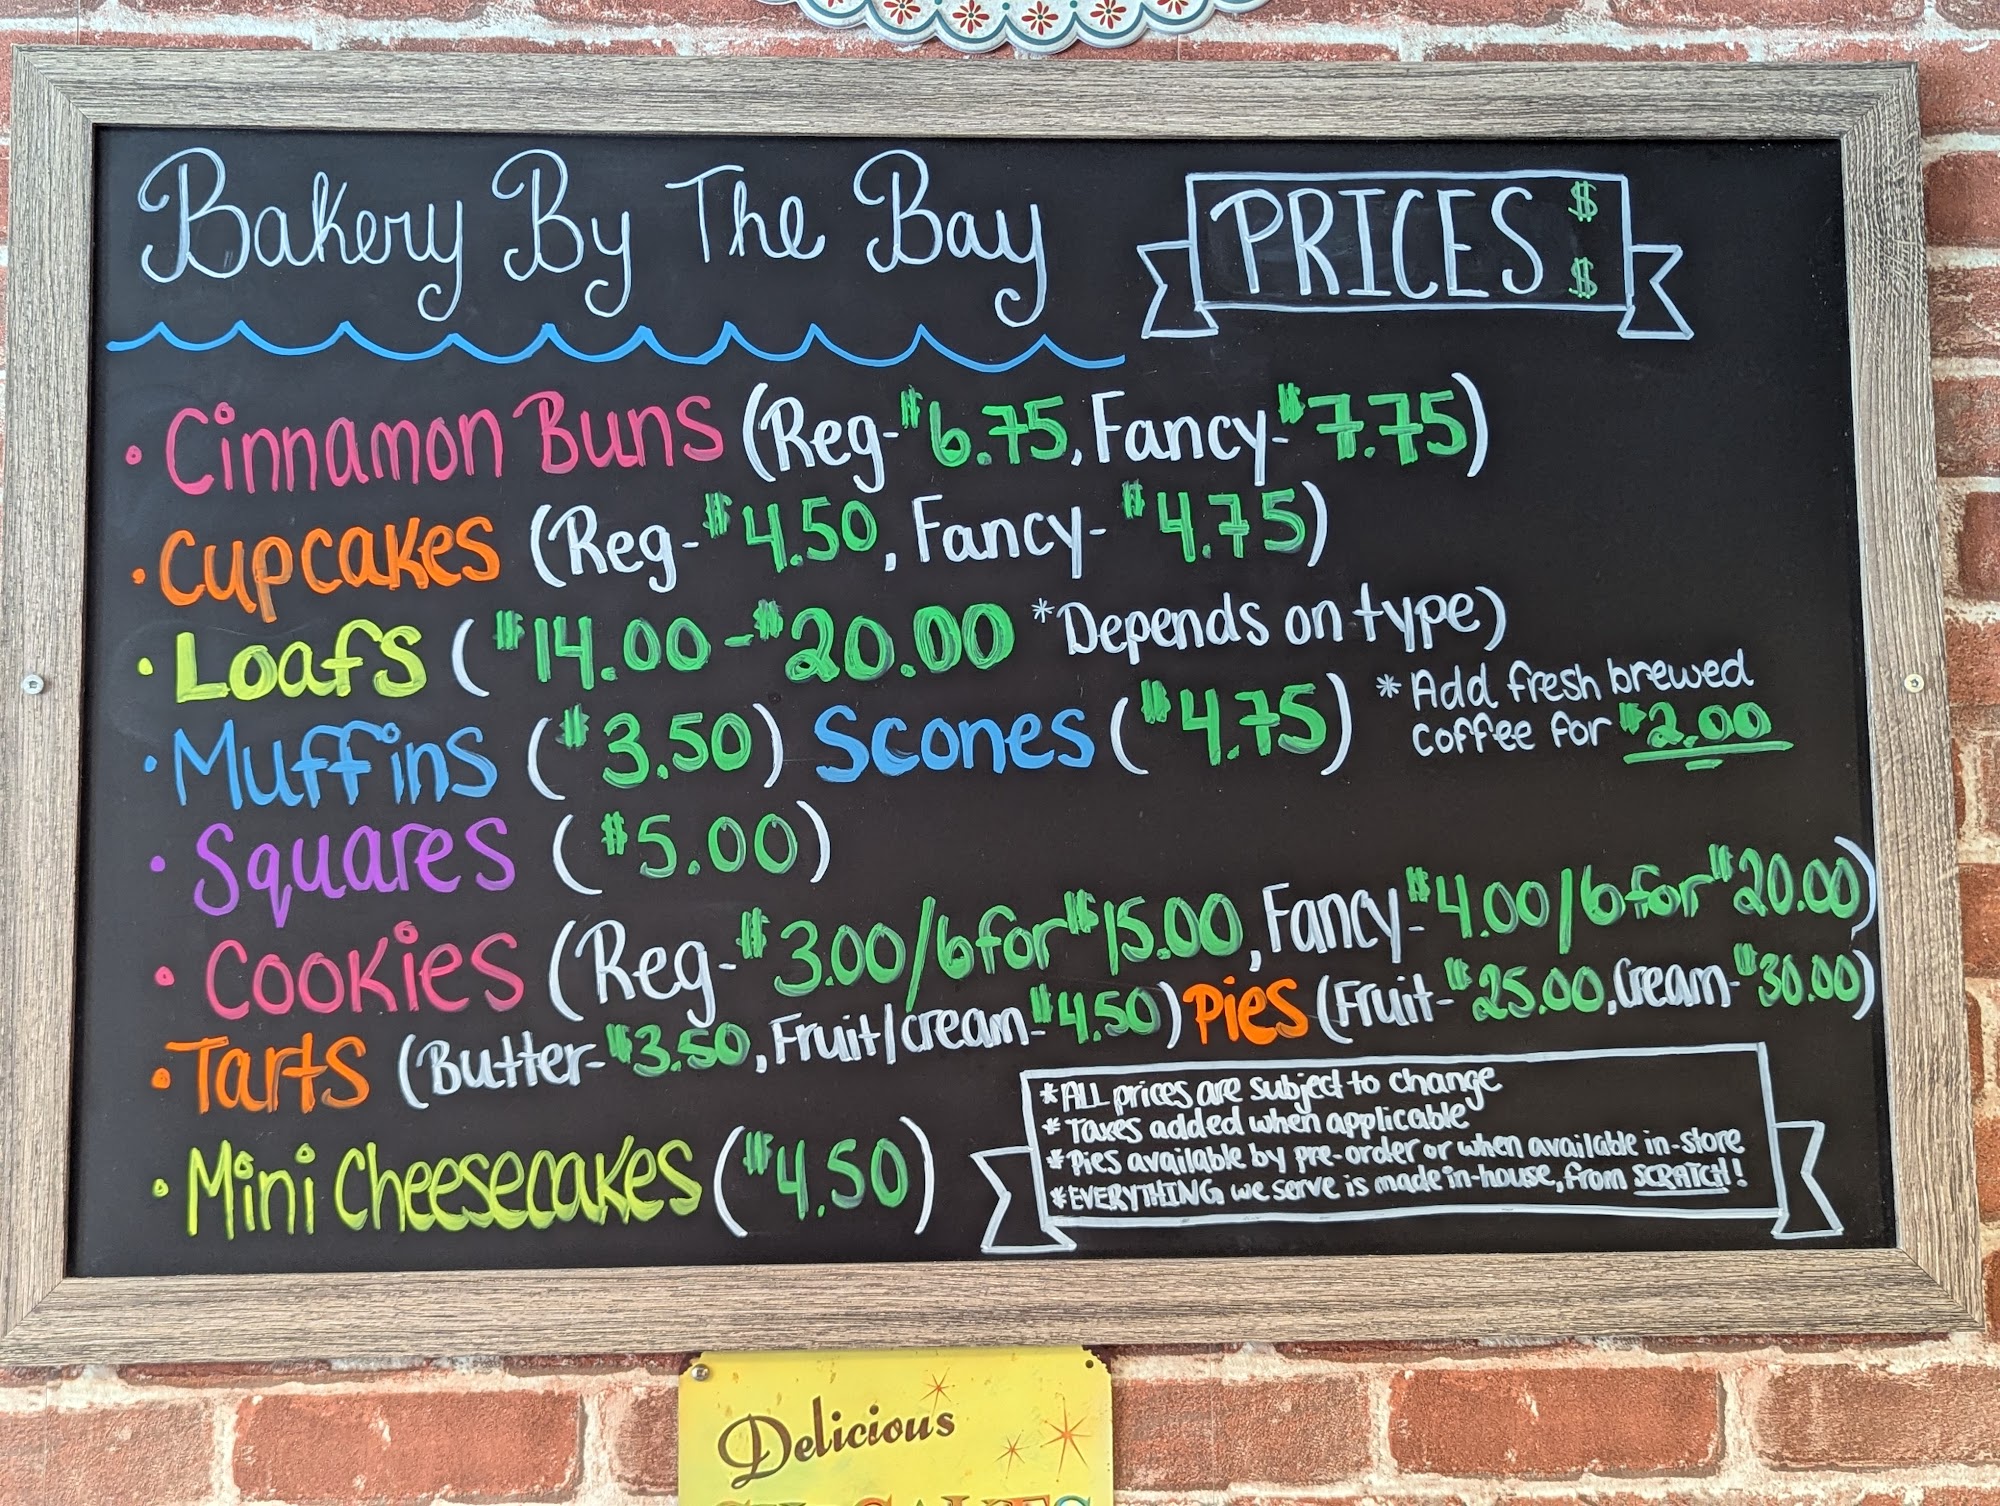 Bakery By The Bay
PRICES $ $
• Cinnamon Buns (Reg-$6.75, Fancy-$7.75)
• Cupcakes (Reg-$4.50, Fancy-$4.75)
• Loafs ($14.00-$20.00 *Depends on type)
• Muffins ($3.50) Scones ($4.75)
* Add fresh brewed
coffee for $2.00
• Squares ($5.00)
• Cookies (Reg-$3.00/6 for $15.00, Fancy-$4.00/6 for $20.00)
• Tarts (Butter-$3.50, Fruit/cream-$4.50) Pies (Fruit-$25.00, Cream-$30.00)
• Mini Cheesecakes ($4.50)
*ALL prices are subject to change
* Taxes added when applicable
*Pies available by pre-order or when available in-store
*EVERYTHING we serve is made in-house, from SCRATCH!
Delicious